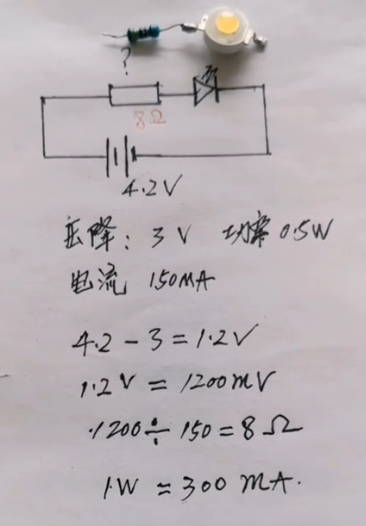 ?
8Ω
4.2V
压降: 3V 功率0.5W
电流 150MA
4.2-3=1.2V
1.2V=1200mV
1200÷150=8Ω
1W=300MA.